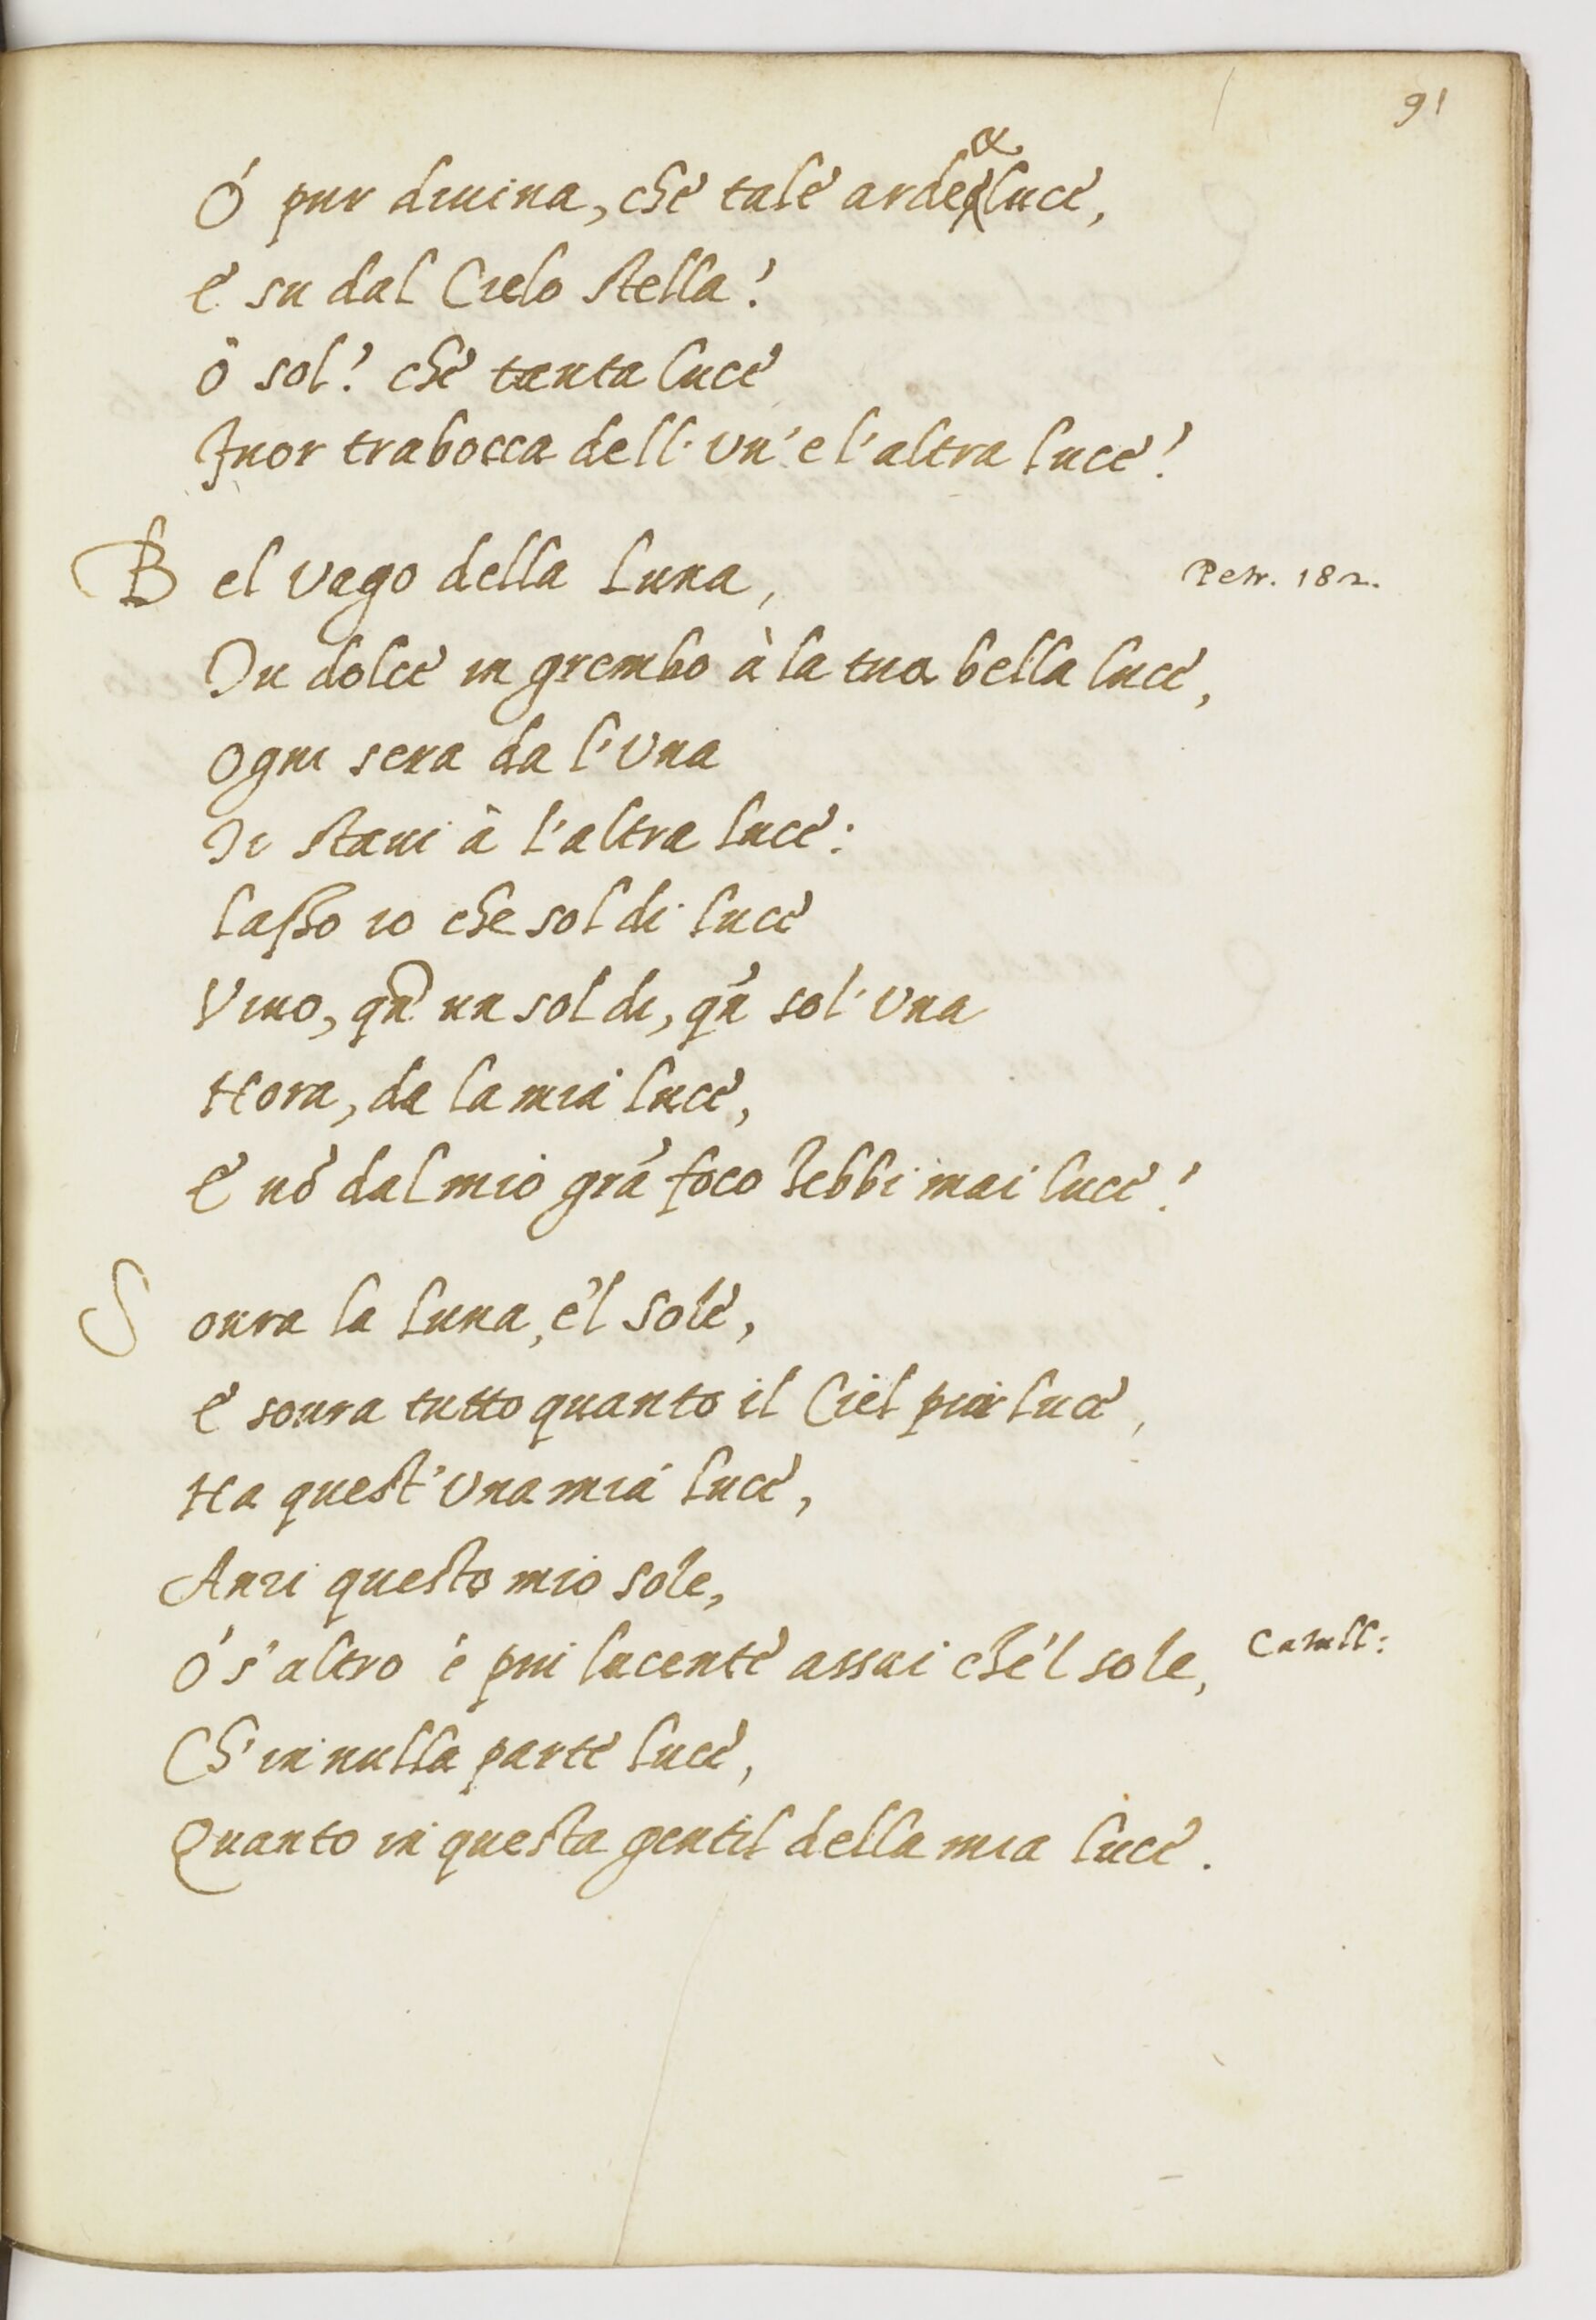 91
Ó pur diuina, che tale arde & luce,
E su dal Cielo stella!
ò sol! che tanta luce
Fuor trabocca dell'un' e l'altra luce!
Bel vago della luna, Petr. 182.
Tu dolce in grembo à la tua bella luce,
Ogni sera da l'una
Ti staui à l'altra luce:
lasso io che sol di luce
Viuo, qñ un sol di, qñ sol'una
Hora, da la mia luce,
E nõ dal mio grã foco hebbi mai luce!
Soura la luna, e'l sole,
E soura tutto quanto il Ciel piu luce,
Ha quest'una mia luce,
Anzi questo mio sole,
Ó s'altro è piu lucente assai che'l sole, Catull:
Ch'in nulla parte luce,
Quanto in questa gentil della mia luce.